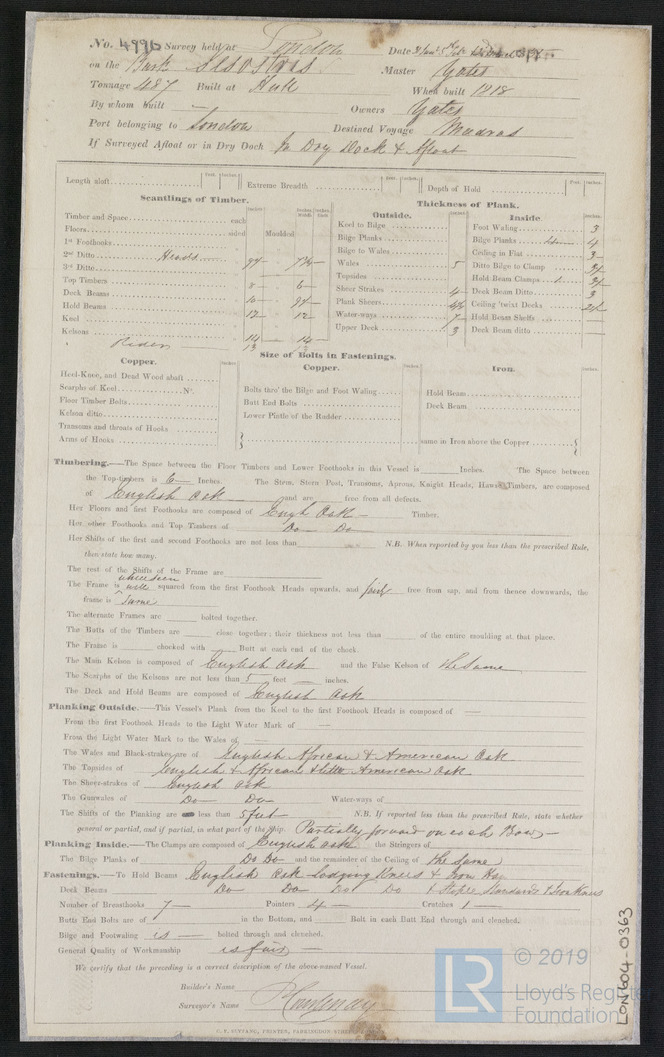 No. 4996 Survey held at London Date
on the Bark Sesostris Master Yates
Tonnage 487 Built at Hull When built 1818
By whom built — Owners Yates
Port belonging to London Destined Voyage Madras
If Surveyed Afloat or in Dry Dock In Dry Dock & Afloat
Length aloft Feet. Inches. Extreme Breadth Feet. Inches. Depth of Hold Feet. Inches.
Scantlings of Timber.
Timber and Space each
Floors sided Moulded
1st Foothooks
2nd Ditto
3rd Ditto
Top Timbers 8 6
Deck Beams 10
Hold Beams 12 12
Keel
Kelsons 14 14
Rider 13
Thickness of Plank.
Outside.
Keel to Bilge
Bilge Planks
Bilge to Wales
Wales 5
Topsides
Sheer Strakes 4
Plank Sheers
Water-ways 7
Upper Deck 3
Inside
Foot Waling 3
Bilge Planks 4
Ceiling in Flat 3
Ditto Bilge to Clamp
Hold Beam Clamps
Deck Beam Ditto 3
Ceiling 'twixt Decks
Hold Beam Shelfs —
Deck Beam ditto —
Size of Bolts in Fastenings.
Copper.
Heel-Knee, and Dead Wood abaft
Scarphs of Keel No.
Floor Timber Bolts
Kelson ditto
Transoms and throats of Hooks
Arms of Hooks
Copper.
Bolts thro' the Bilge and Foot Waling
Butt End Bolts
Lower Pintle of the Rudder
Iron.
Hold Beam
Deck Beam
same in Iron above the Copper
Timbering.—The Space between the Floor Timbers and Lower Foothooks in this Vessel is Inches. The Space between
the Top-timbers is 6 Inches. The Stem, Stern Post, Transoms, Aprons, Knight Heads, Hawse Timbers, are composed
of English Oak and are free from all defects.
Her Floors and first Foothooks are composed of Engh Oak Timber.
Her other Foothooks and Top Timbers of Do Do
Her Shifts of the first and second Foothooks are not less than N.B. When reported by you less than the prescribed Rule,
then state how many.
The rest of the Shifts of the Frame are
The Frame is where seen well squared from the first Foothook Heads upwards, and fairly free from sap, and from thence downwards, the
frame is Same
The alternate Frames are bolted together.
The Butts of the Timbers are close together; their thickness not less than of the entire moulding at that place.
The Frame is chocked with Butt at each end of the chock.
The Main Kelson is composed of English Oak and the False Kelson of the Same
The Scarphs of the Kelsons are not less than 5 feet — inches.
The Deck and Hold Beams are composed of English Oak
Planking Outside.—This Vessel's Plank from the Keel to the first Foothook Heads is composed of —
From the first Foothook Heads to the Light Water Mark of —
From the Light Water Mark to the Wales of —
The Wales and Black-strakes are of English African & American Oak
The Topsides of English & African & little American Oak
The Sheer-strakes of English Oak
The Gunwales of Do Do Water-ways of
The Shifts of the Planking are less than 5 feet N.B. If reported less than the prescribed Rule, state whether
general or partial, and if partial, in what part of the Ship. Partially forward on each Bow —
Planking Inside.—The Clamps are composed of English Oak the Stringers of
The Bilge Planks of Do Do and the remainder of the Ceiling of the Same
Fastenings.—To Hold Beams English Oak Lodging Knees & Iron
Deck Beams Do Do Do Do & Staple Standards & Iron Knees
Number of Breasthooks 7 — Pointers 4 — Crutches 1 —
Butts End Bolts are of in the Bottom, and Bolt in each Butt End through and clenched.
Bilge and Footwaling is — bolted through and clenched.
General Quality of Workmanship is fair —
We certify that the preceding is a correct description of the above-named Vessel.
Builder's Name
Surveyor's Name P Courtenay
C. F. SEYFANG, PRINTER, FARRINGDON STREET
© 2019
LR Lloyd's Register
Foundation
LON604-0363